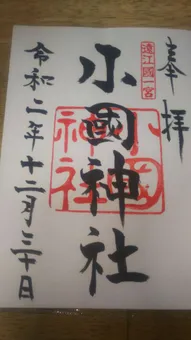 奉拝
遠江國一宮
小國神社
小國神社
令和二年十二月三十日